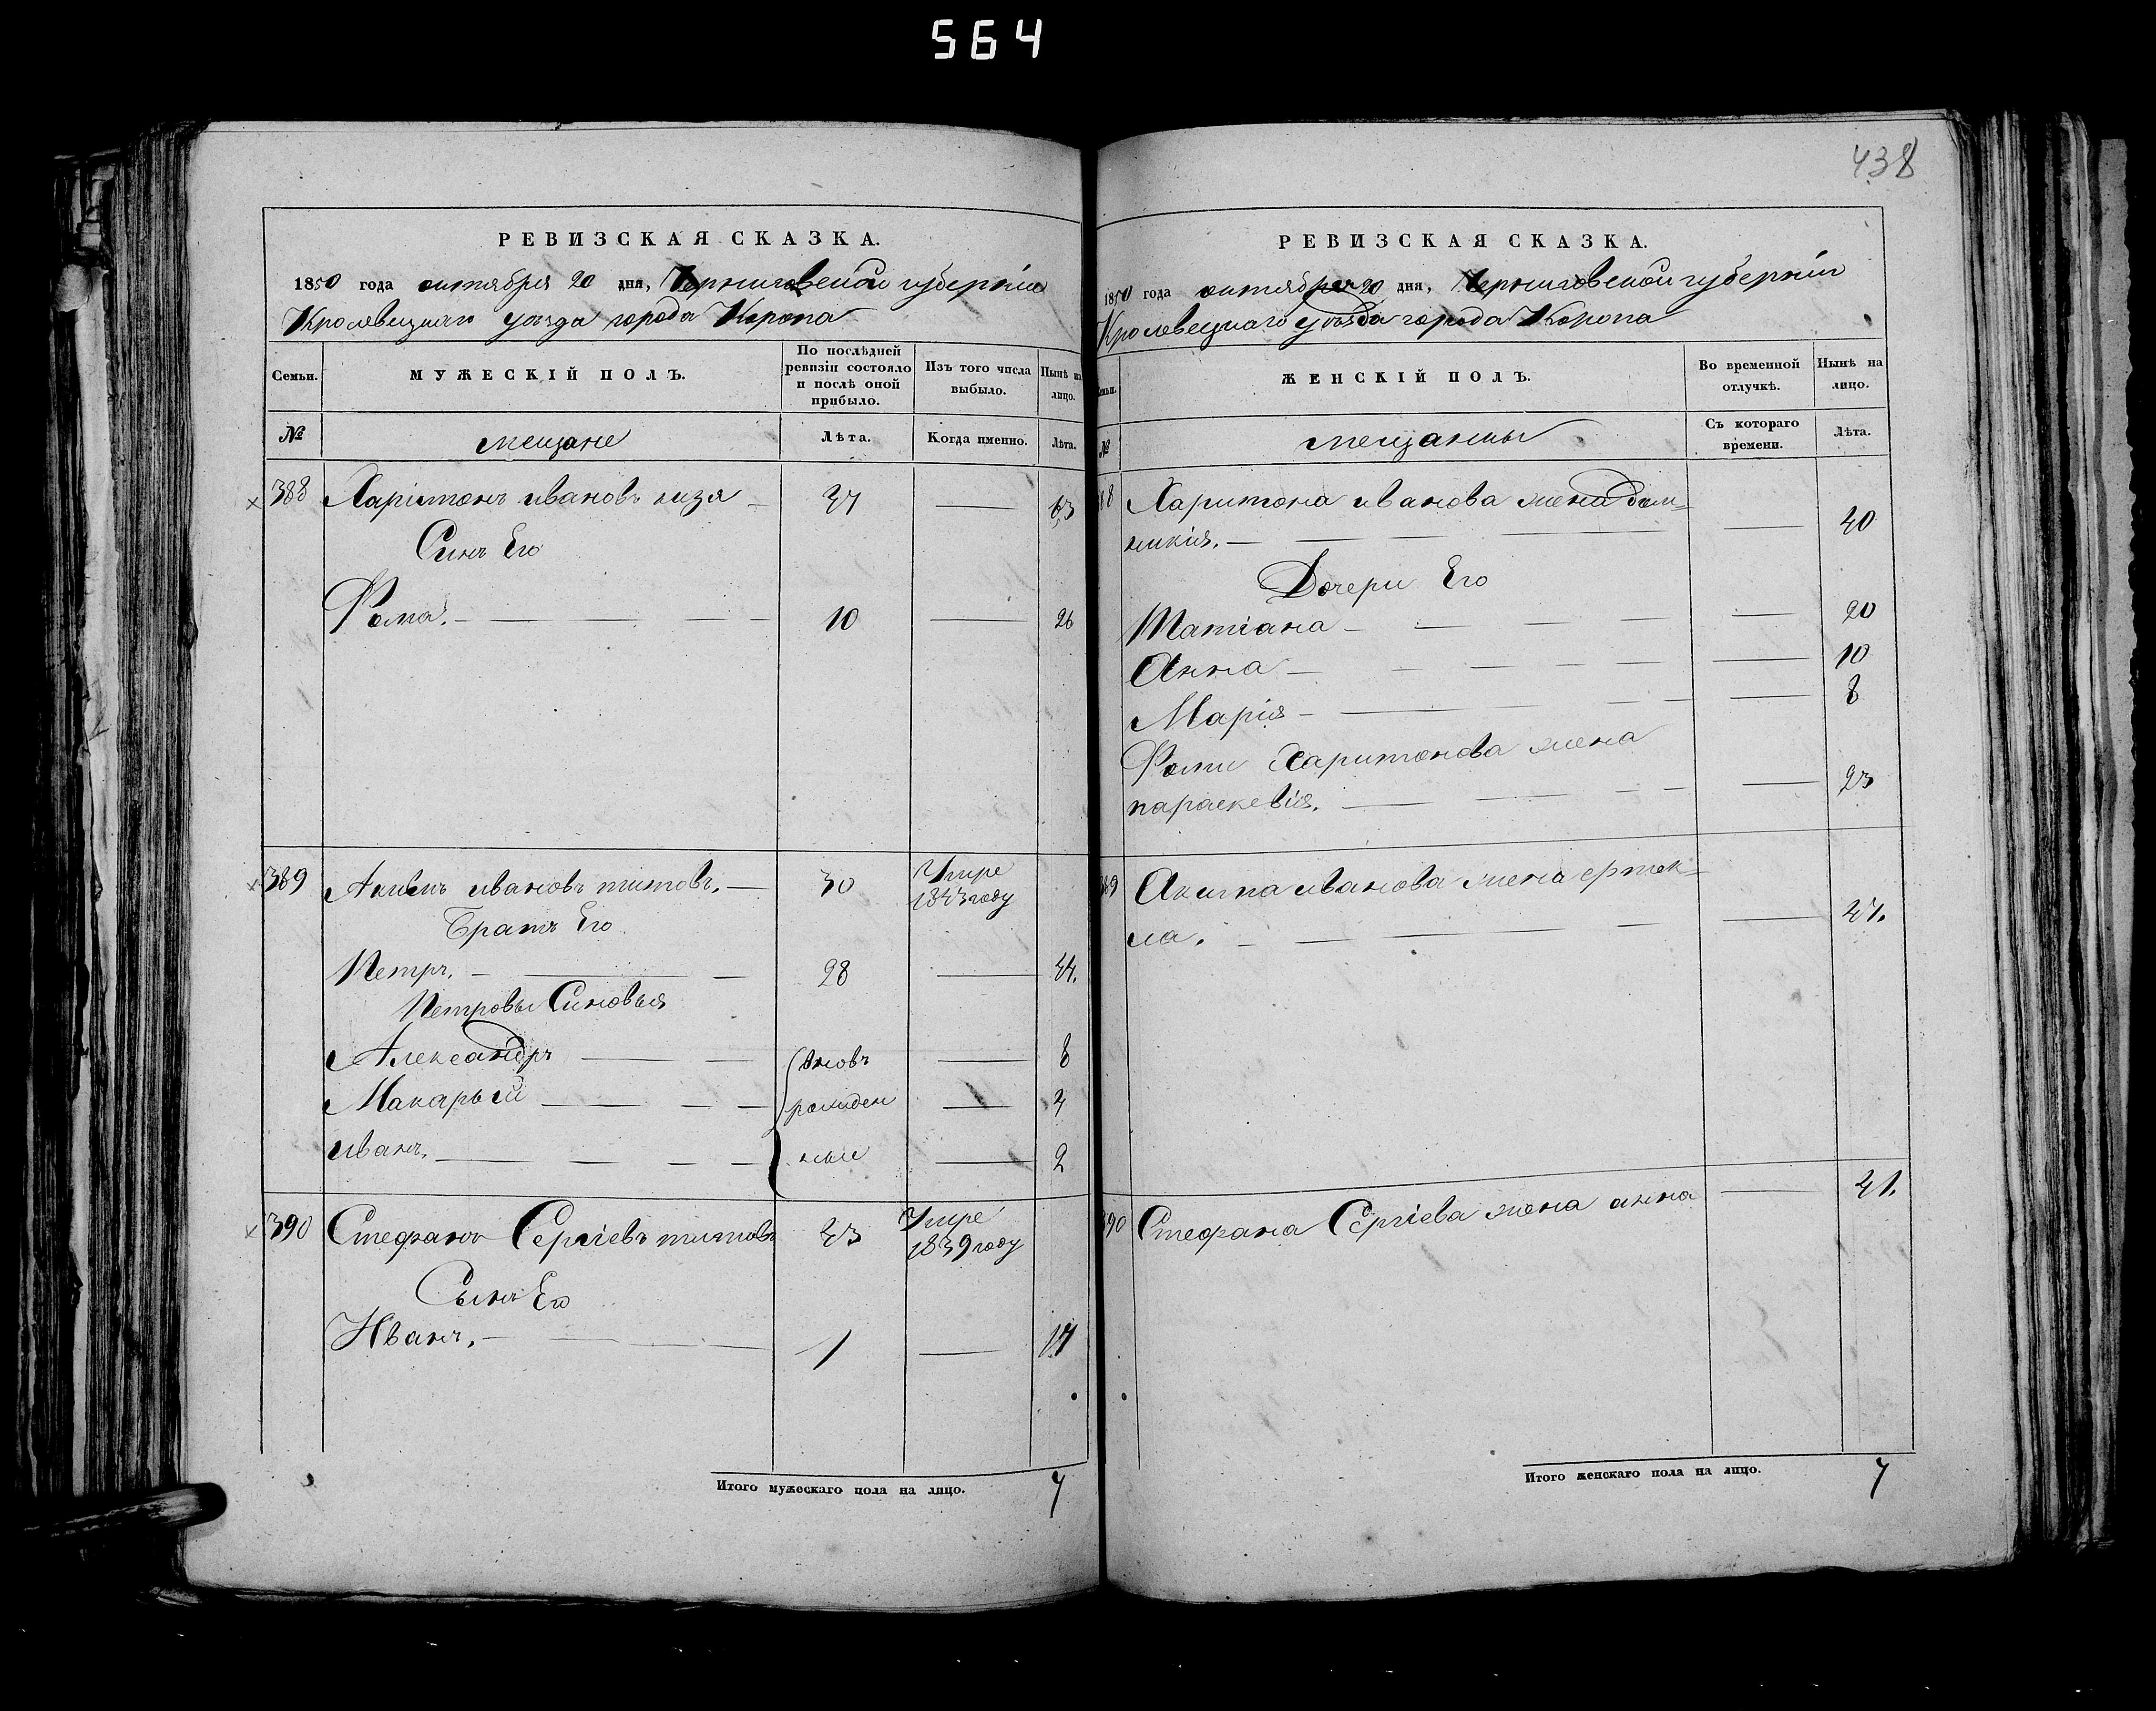 564
438
РЕВИЗСКАЯ СКАЗКА.
1850 года октября 20 дня, Черниговской губернии
Кролевецкаго уѣзда города Коропа
Семьи. МУЖЕСКІЙ ПОЛЪ. По послѣдней ревизіи состояло и послѣ оной прибыло. Изъ того числа выбыло. Нынѣ на лицо.
№ мещане Лѣта. Когда именно. Лѣта.
388 Харітонъ ивановъ кизя 47 63
Синъ Его
Фома. 10 26
389 Акимъ ивановъ титовъ. 30 Умре 1843 году
Братъ Его
Петръ. 28 44.
Петровы Синовья
Александръ вновь 8
Макарый рожден 4
иванъ. ные 2
390 Стефанъ Сергіевъ титовъ 43 Умре 1839 году
Сынъ Его
Иванъ. 1 17
Итого мужескаго пола на лицо. 7
РЕВИЗСКАЯ СКАЗКА.
1850 года октября 20 дня, Черниговской губерніи
Кролевецкаго уѣзда города Коропа
Семьи. ЖЕНСКІЙ ПОЛЪ. Во временной отлучкѣ. Нынѣ на лицо.
№ мещанки Съ котораго времени. Лѣта.
88 Харитона иванова жена дом-
никия. 40
Дочери Его
Татіана 20
Анна 10
Марія 8
Фоми Харитонова жена
параскевія. 23
389 Акима иванова жена
47.
390 Стефана Сергіева жена анна 41.
Итого женскаго пола на лицо. 7